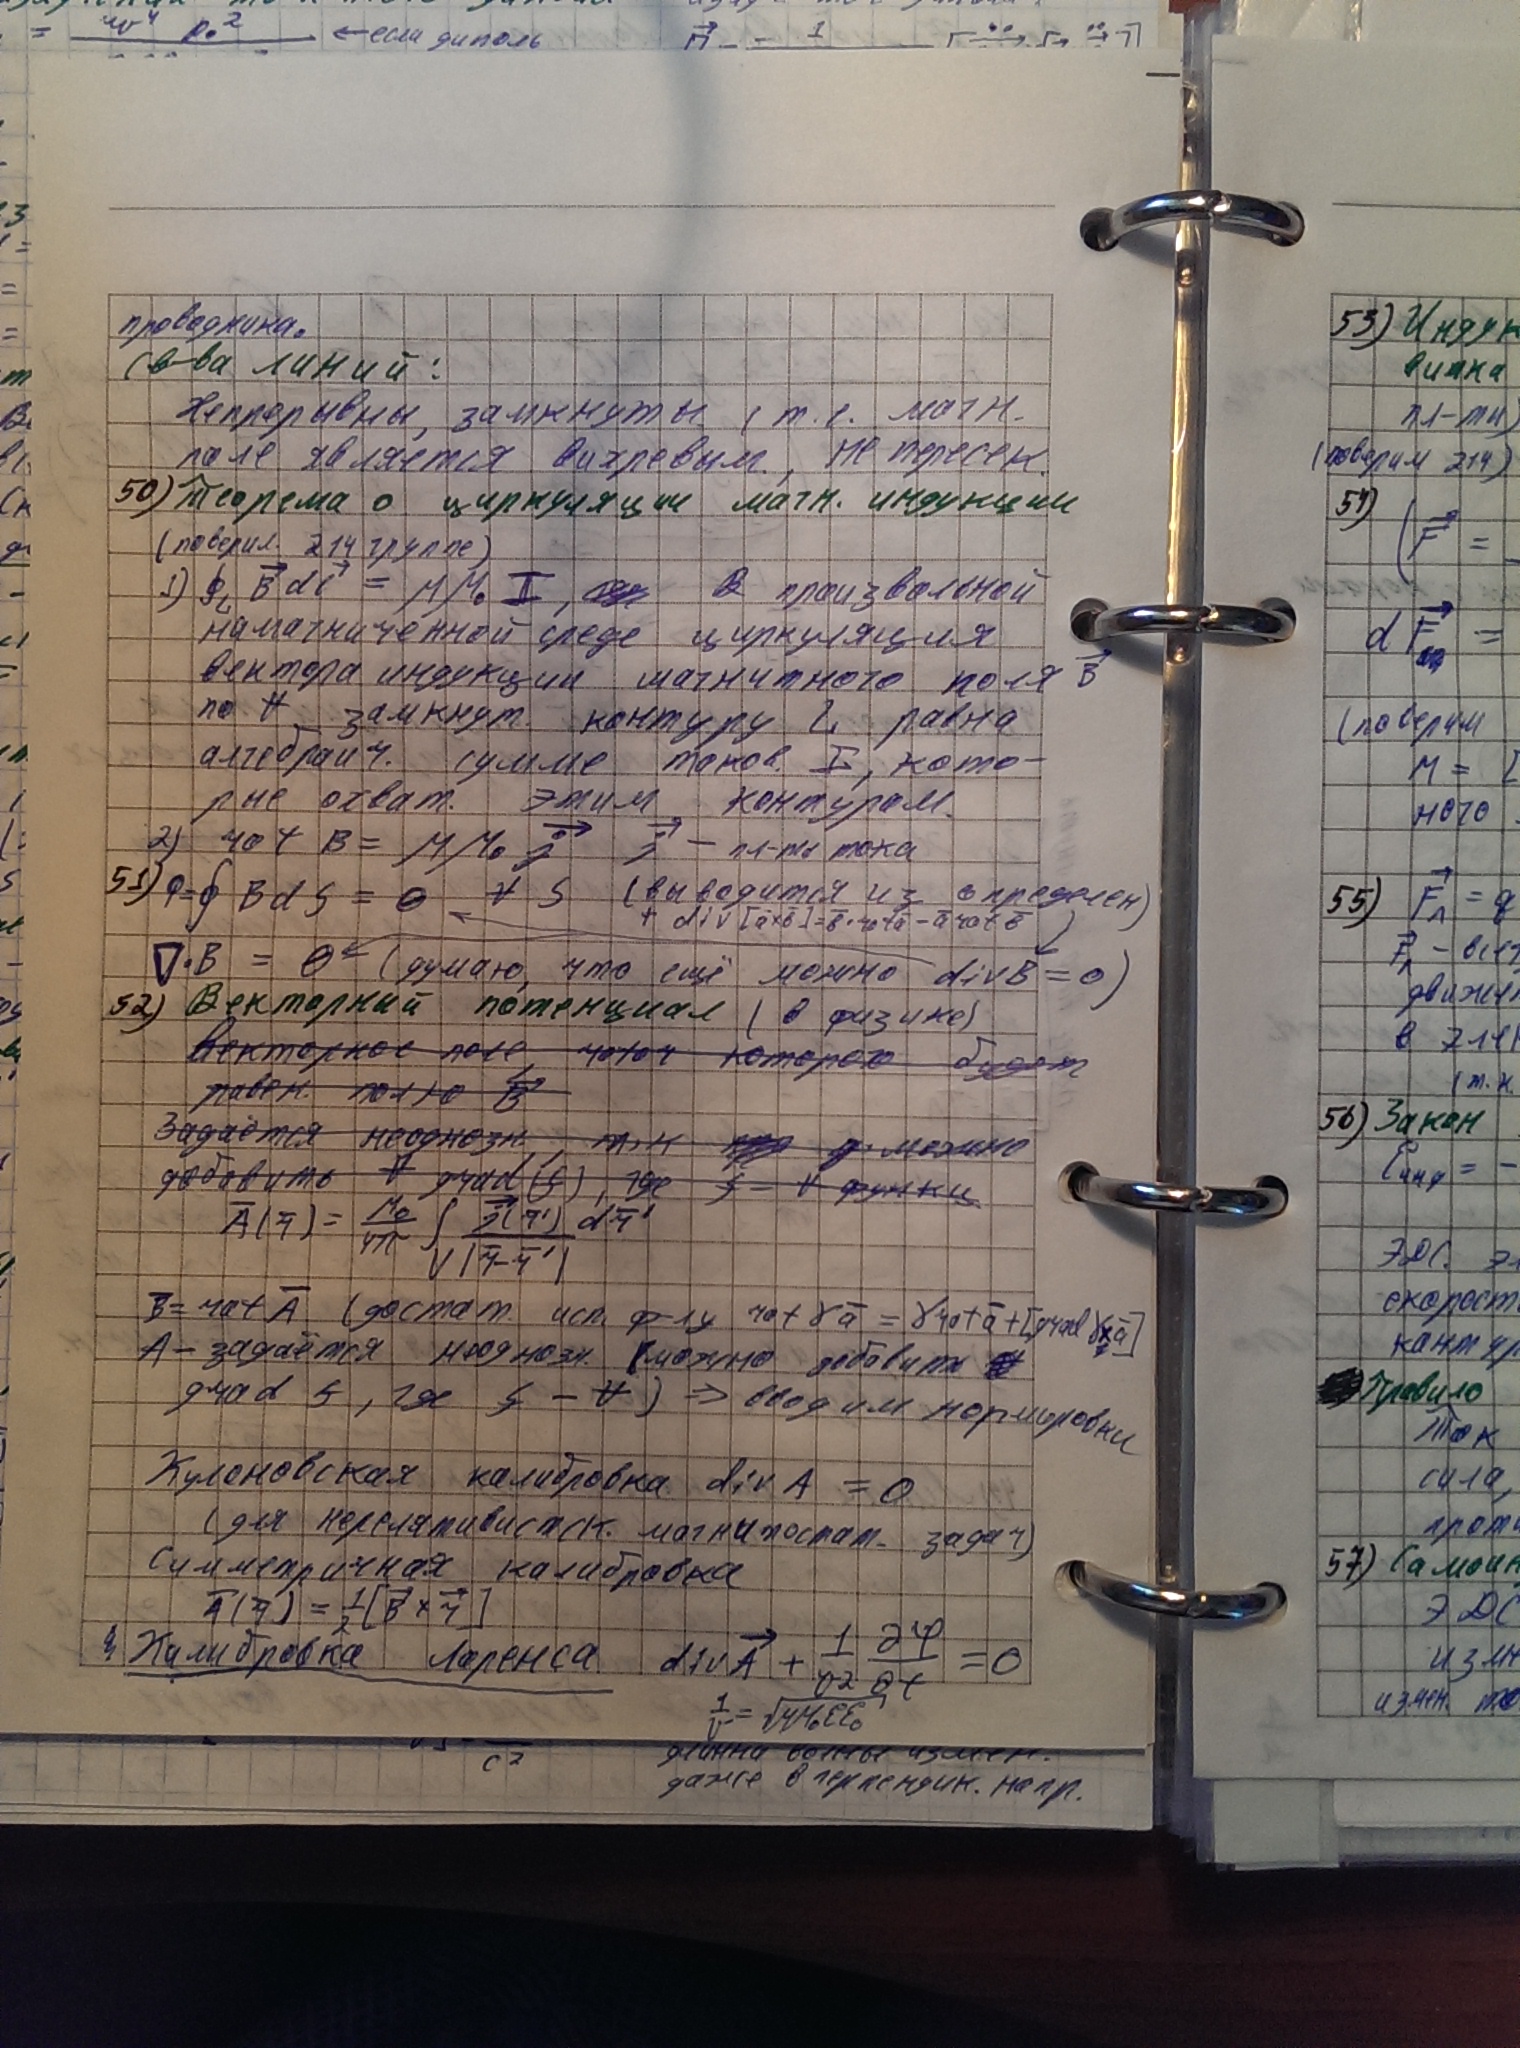 ← если диполь
проводника.
Св-ва линий:
Непрерывны, замкнуты (т.е. магн.
поле является вихревым, не пересек.
50) Теорема о циркуляции магн. индукции
(поверим 214 группе)
1) ∮_L B⃗ dl⃗ = μμ₀ I, В произвольной
намагниченной среде циркуляция
вектора индукции магнитного поля B⃗
по ∀ замкнут. контуру L равна
алгебраич. сумме токов I, кото-
рые охват. этим контуром.
2) rot B = μμ₀ j⃗   j⃗ – пл-ть тока
51) Φ=∮ B dS = 0 ∀ S (выводится из определен)
+ div [a̅×b̅]=b̅·rot a̅ – a̅ rot b̅
∇·B = 0 (думаю, что ещё можно div B̅ = 0)
52) Векторный потенциал (в физике)
Векторное поле, ротор которого будет
равен полю B⃗
Задаётся неодозн. т.к можно
добавить ∀ grad(f), где f – ∀ функц
A̅(r̅) = μ₀/4π ∫_V j⃗(r̅')/|r̅-r̅'| dr̅'
B̅= rot A̅ (достат. исп. ф-лу rot γa̅ = γ rot a̅ + [grad γ × a̅]
A – задаётся неодозн. (можно добавить
grad f, где f – ∀) ⇒ вводим нормировки
Кулоновская калибровка div A = 0
(для нерелятивистск. магнитостат. задач)
Симметричная калибровка
A̅(r̅) = 1/2 [B⃗ × r⃗]
Калибровка Лоренса div A⃗ + 1/v² ∂φ/∂t = 0
1/v = √μμ₀εε₀
c²
длинна волны измен.
даже в перпендик. напр.
53) Индук
витка
пл-ти)
(поверим 214)
54) (F⃗ =
dF⃗ =
(поверим
M = [
ного
55) F⃗л = q
F⃗л – вел
движен
в элек
(т.к.
56) Закон
Eинд = –
ЭДС. эл
скорост
контур
Правило
Ток
сила,
проти
57) Самоин
ЭДС
изм
измен. то